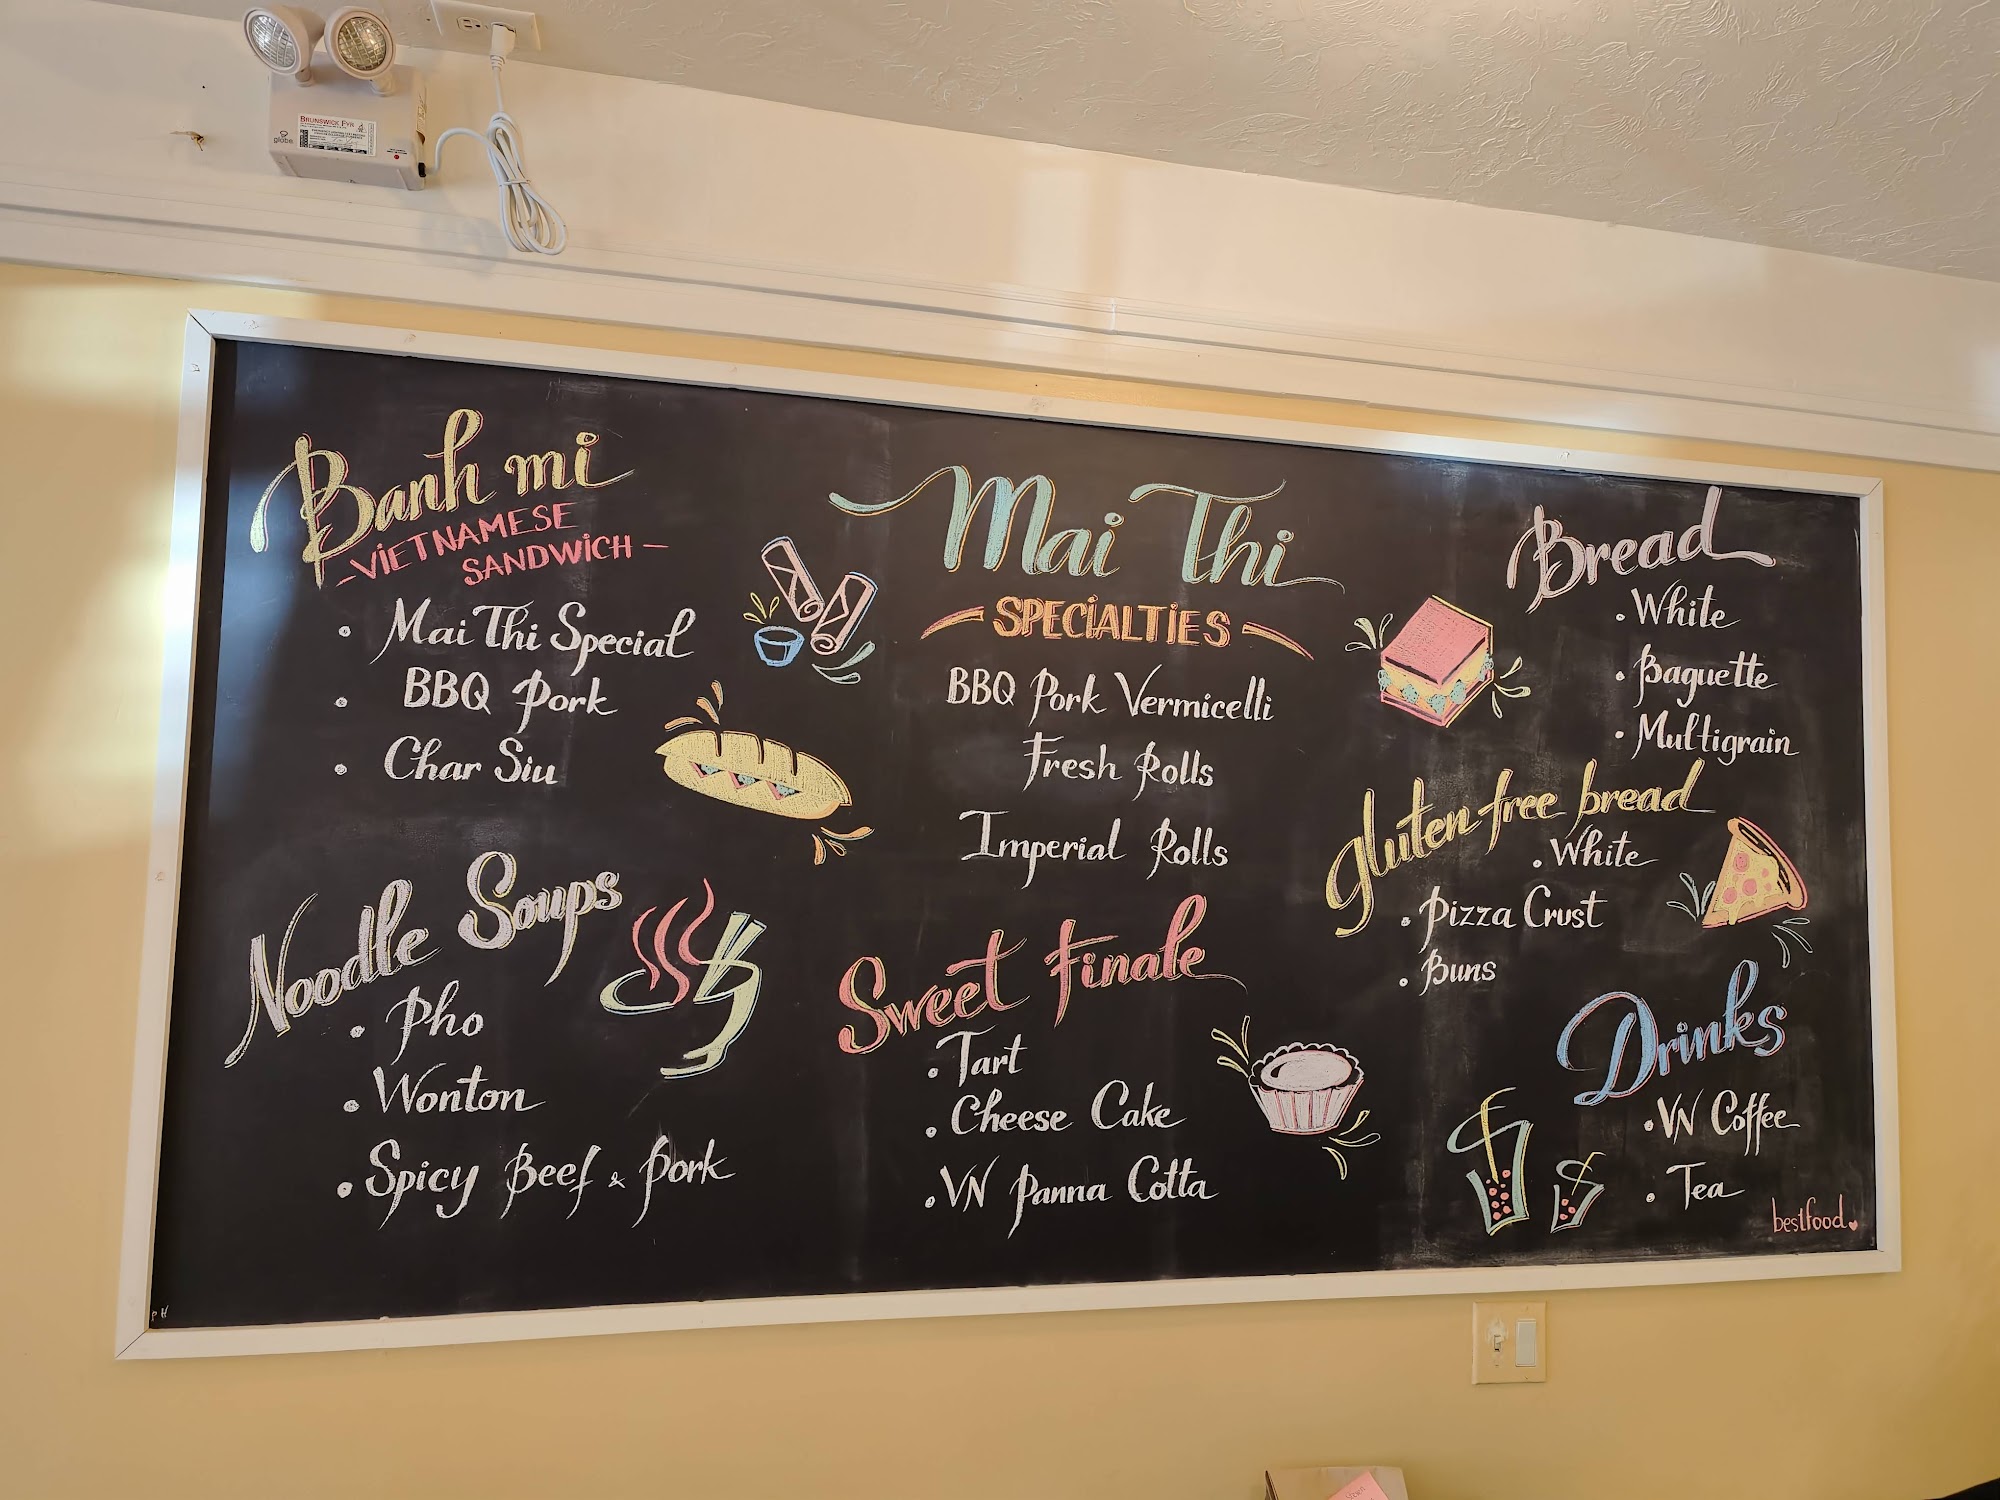 BRUNSWICK FYR
globe
Banh mi
- VIETNAMESE
SANDWICH -
• Mai Thi Special
• BBQ Pork
• Char Siu
Noodle Soups
• Pho
• Wonton
• Spicy Beef & Pork
Mai Thi
SPECIALTIES
BBQ Pork Vermicelli
Fresh Rolls
Imperial Rolls
Sweet Finale
• Tart
• Cheese Cake
• VN Panna Cotta
Bread
• White
• Baguette
• Multigrain
gluten free bread
• White
• Pizza Crust
• Buns
Drinks
• VN Coffee
• Tea
bestfood
PH